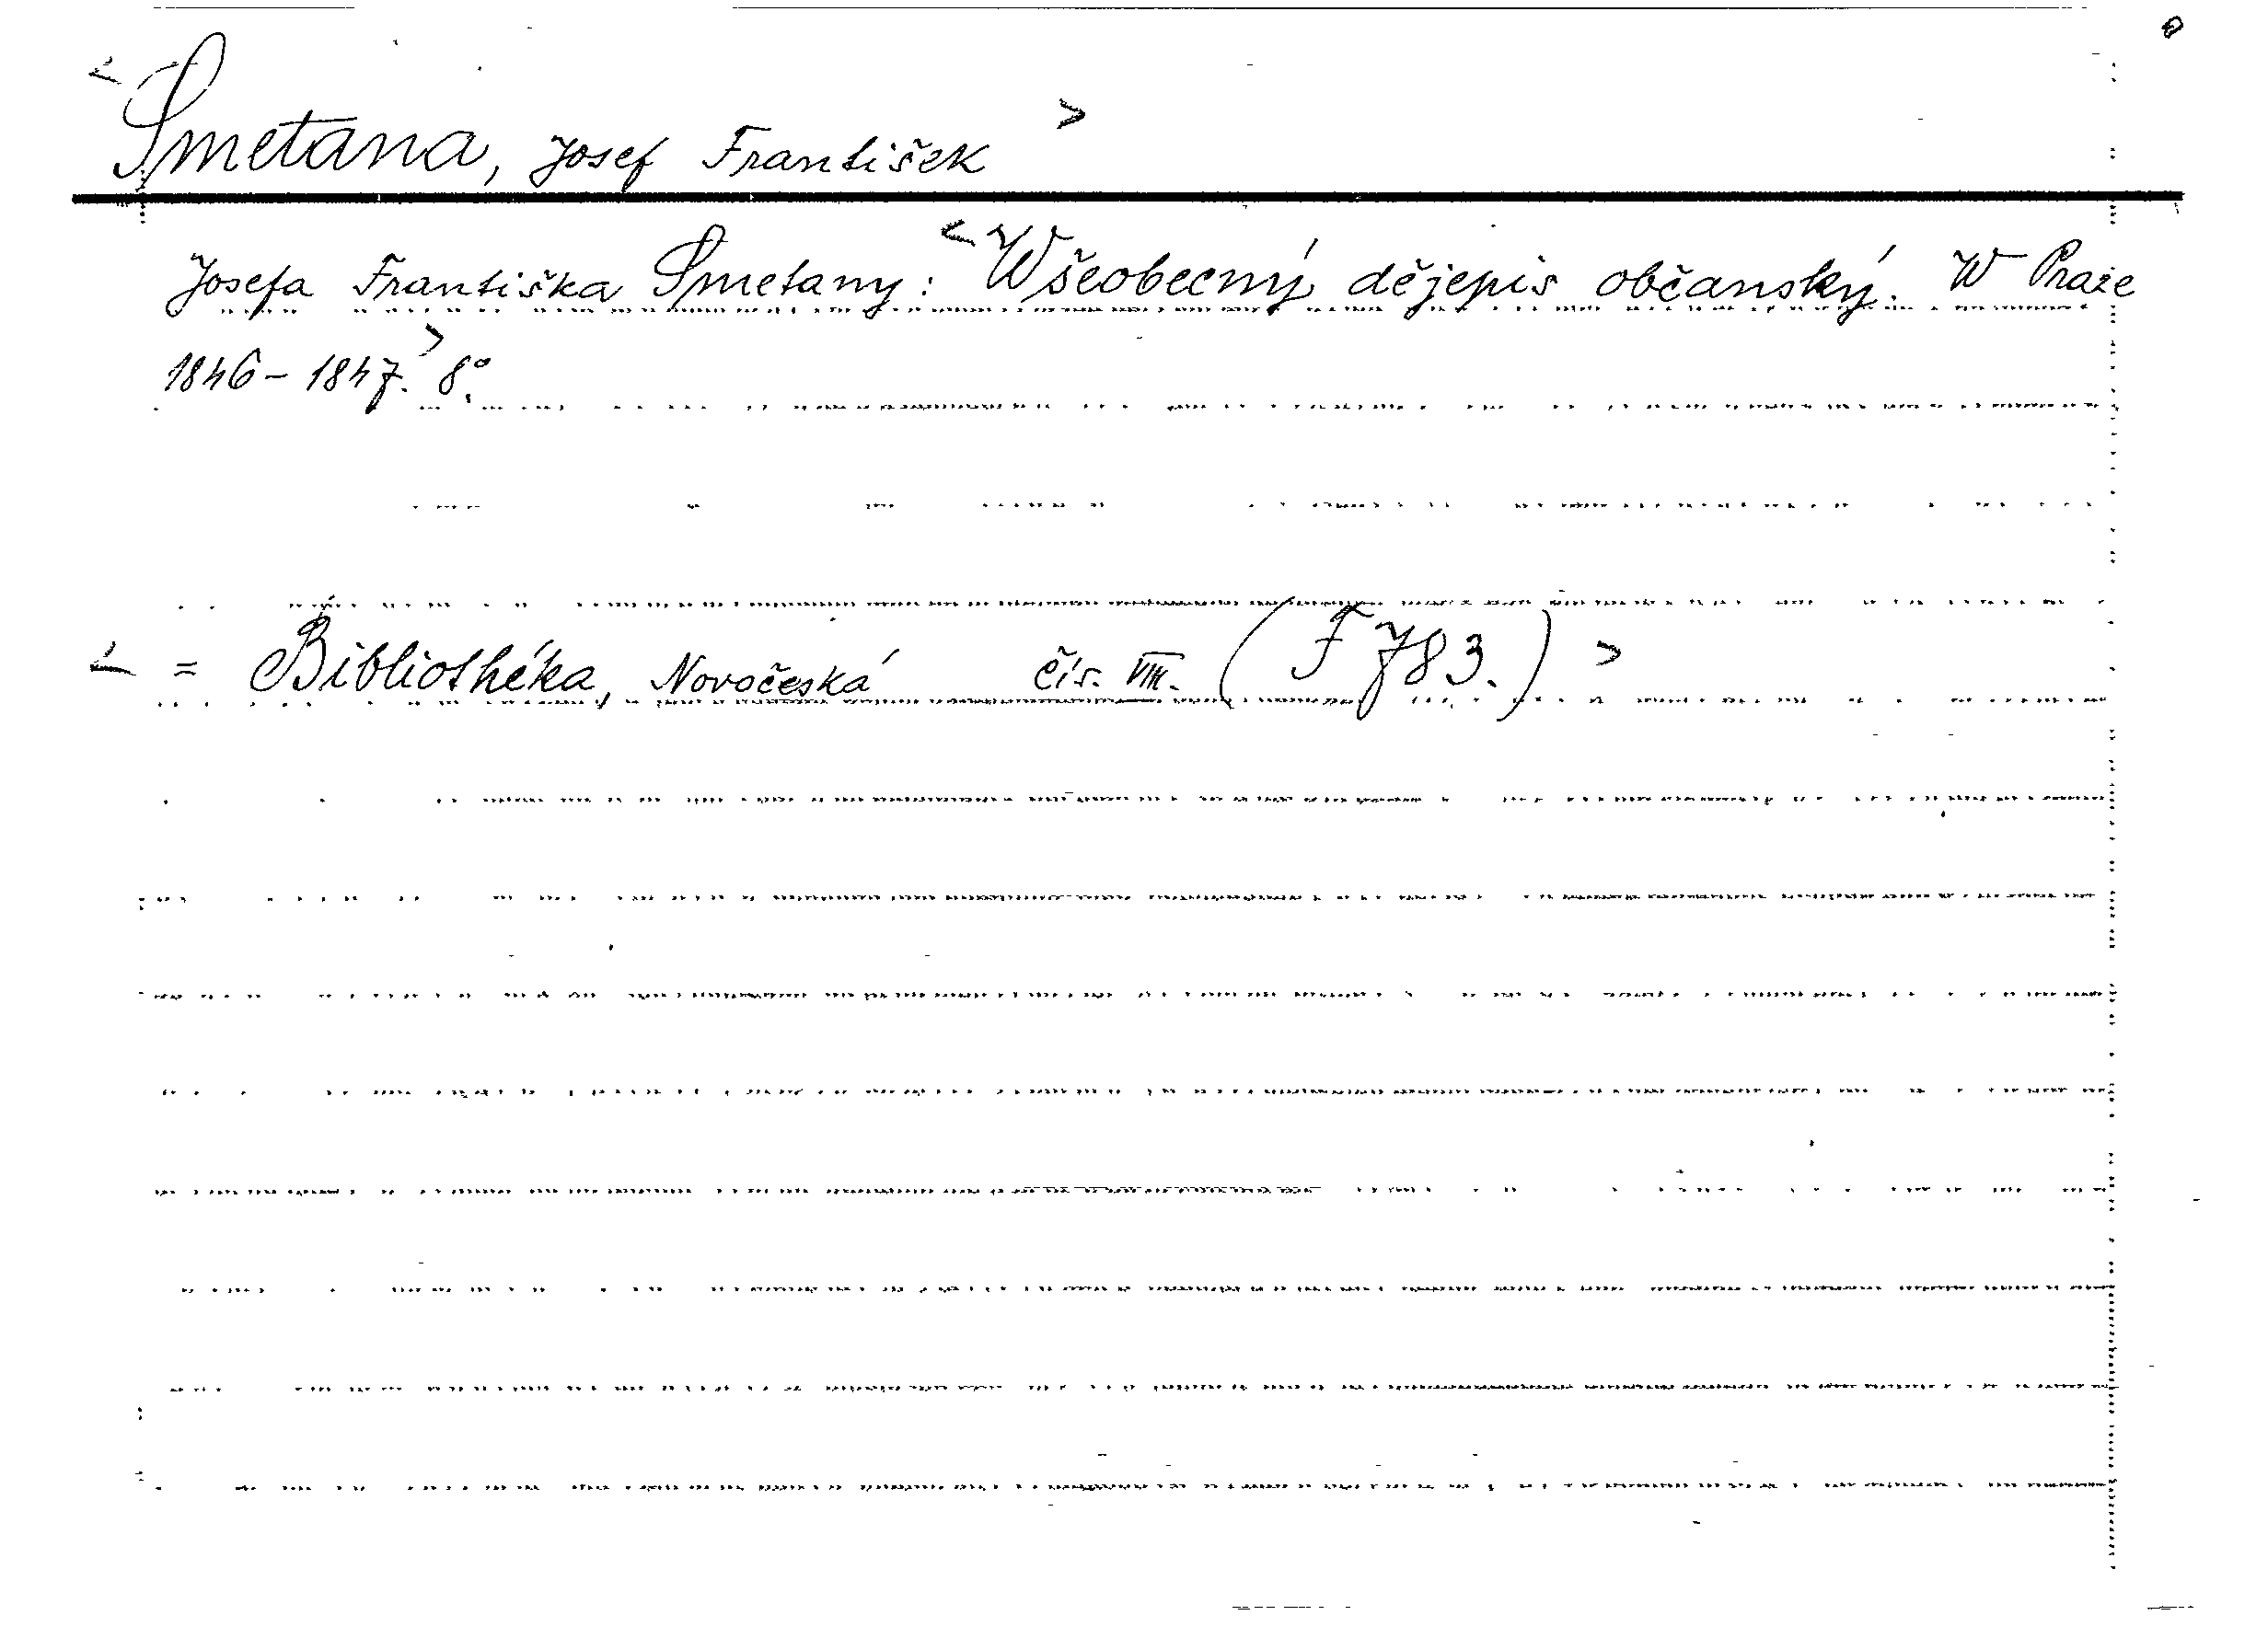 <Smetana, Josef František>
Josefa Františka Smetany: <Wšeobecný dějepis občanský. W Praze
1846-1847.> 8°.
< = Bibliothéka, Novočeská čís. VIII. (F 783.) >